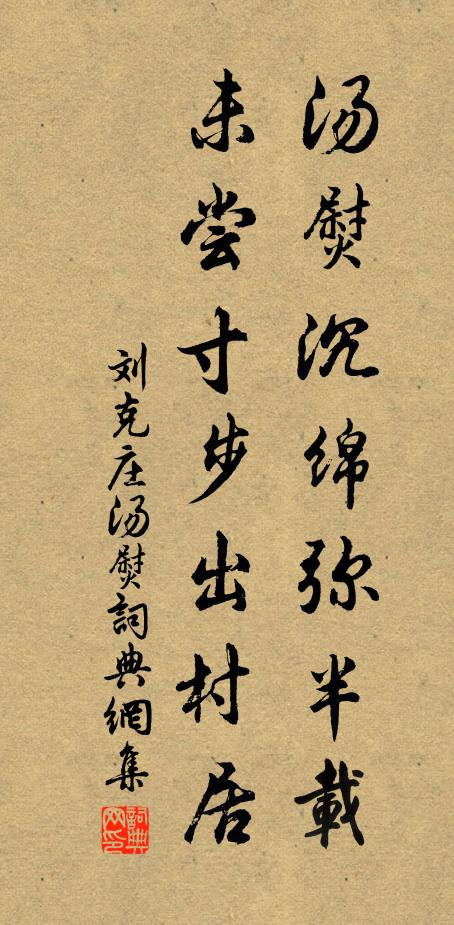 汤熨沉绵弥半載
未尝寸步出村居
刘克庄汤熨詞典網集
詞典网印